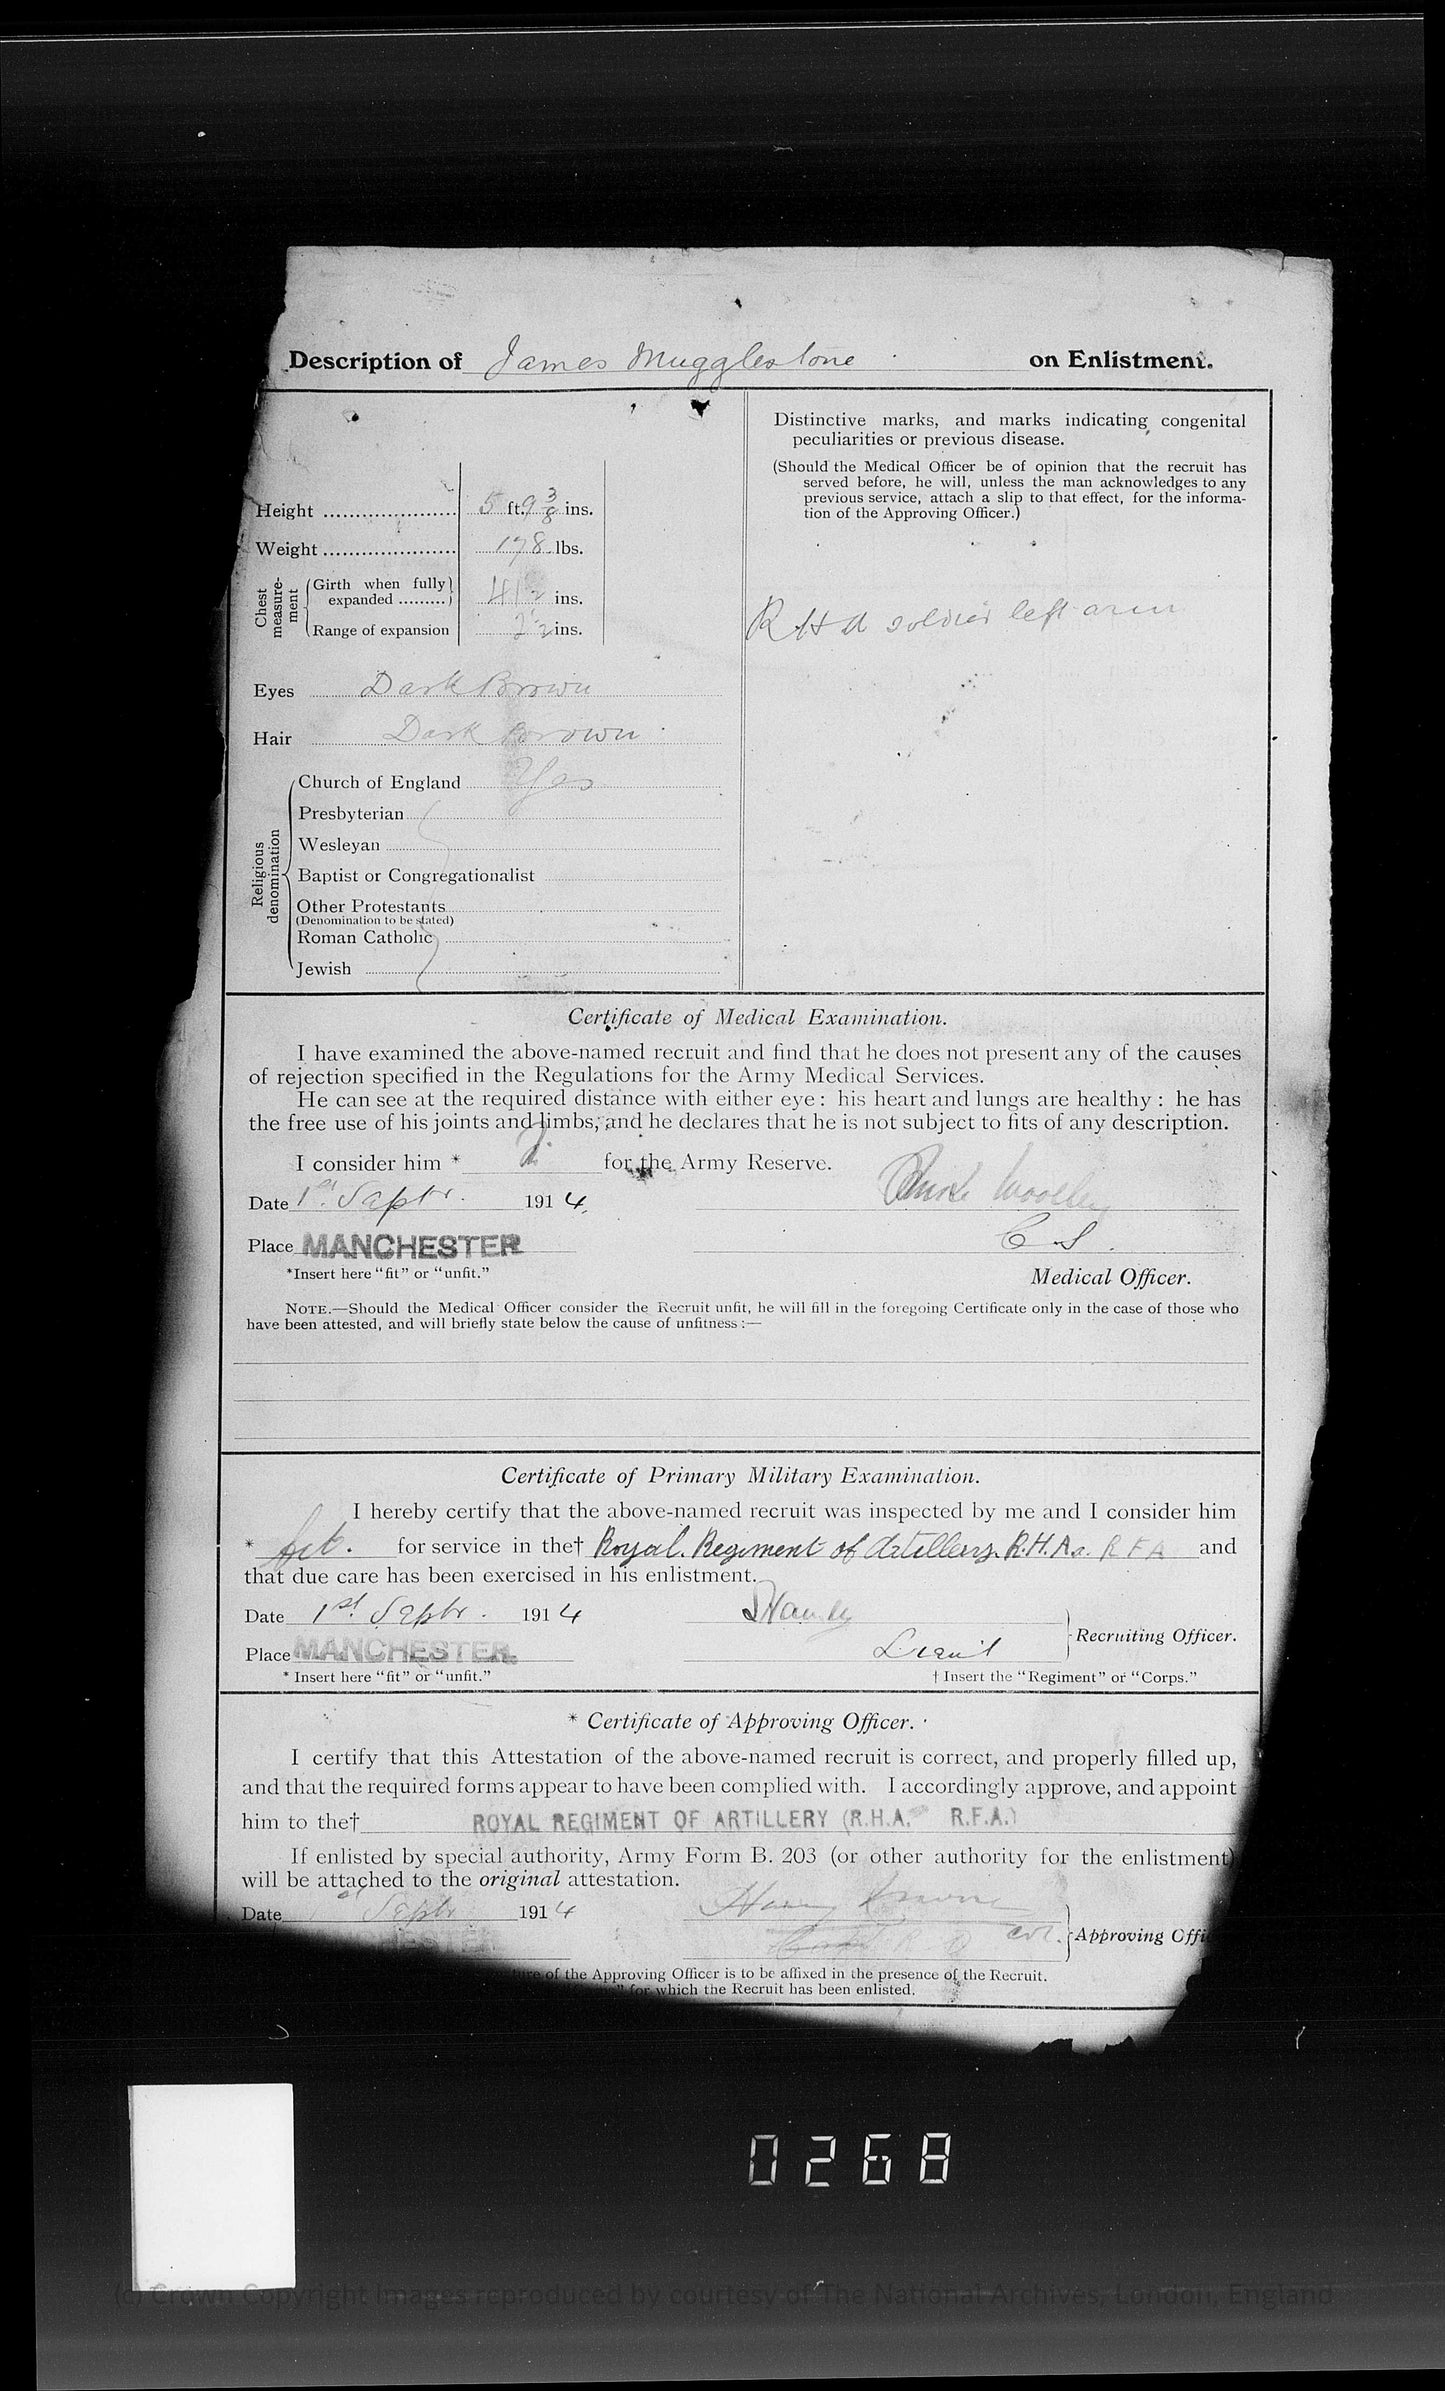 Description of James Mugglestone on Enlistment.
Distinctive marks, and marks indicating congenital
peculiarities or previous disease.
(Should the Medical Officer be of opinion that the recruit has
served before, he will, unless the man acknowledges to any
previous service, attach a slip to that effect, for the informa-
tion of the Approving Officer.)
Height 5 ft. 9 3/8 ins.
Weight 178 lbs.
Chest measure-ment
Girth when fully expanded 41 1/2 ins.
Range of expansion 2 1/2 ins.
R H A soldier left arm
Eyes Dark Brown
Hair Dark Brown
Religious denomination
Church of England Yes
Presbyterian
Wesleyan
Baptist or Congregationalist
Other Protestants
(Denomination to be stated)
Roman Catholic
Jewish
Certificate of Medical Examination.
I have examined the above-named recruit and find that he does not present any of the causes
of rejection specified in the Regulations for the Army Medical Services.
He can see at the required distance with either eye: his heart and lungs are healthy: he has
the free use of his joints and limbs, and he declares that he is not subject to fits of any description.
I consider him * for the Army Reserve.
Date 1st Septr. 1914.
Woolley
Place MANCHESTER
C S.
*Insert here "fit" or "unfit."
Medical Officer.
NOTE.—Should the Medical Officer consider the Recruit unfit, he will fill in the foregoing Certificate only in the case of those who
have been attested, and will briefly state below the cause of unfitness:—
Certificate of Primary Military Examination.
I hereby certify that the above-named recruit was inspected by me and I consider him
* fit. for service in the† Royal. Regiment of Artillery. R.H.A. R F A and
that due care has been exercised in his enlistment.
Date 1st Septr. 1914
Recruiting Officer.
Place MANCHESTER.
Lieut
* Insert here "fit" or "unfit."
† Insert the "Regiment" or "Corps."
* Certificate of Approving Officer.
I certify that this Attestation of the above-named recruit is correct, and properly filled up,
and that the required forms appear to have been complied with. I accordingly approve, and appoint
him to the† ROYAL REGIMENT OF ARTILLERY (R.H.A. R.F.A.)
If enlisted by special authority, Army Form B. 203 (or other authority for the enlistment)
will be attached to the original attestation.
Date Septr 1914
Col. Approving Offi
of the Approving Officer is to be affixed in the presence of the Recruit.
for which the Recruit has been enlisted.
0268
(c) Crown Copyright Images reproduced by courtesy of The National Archives, London, England